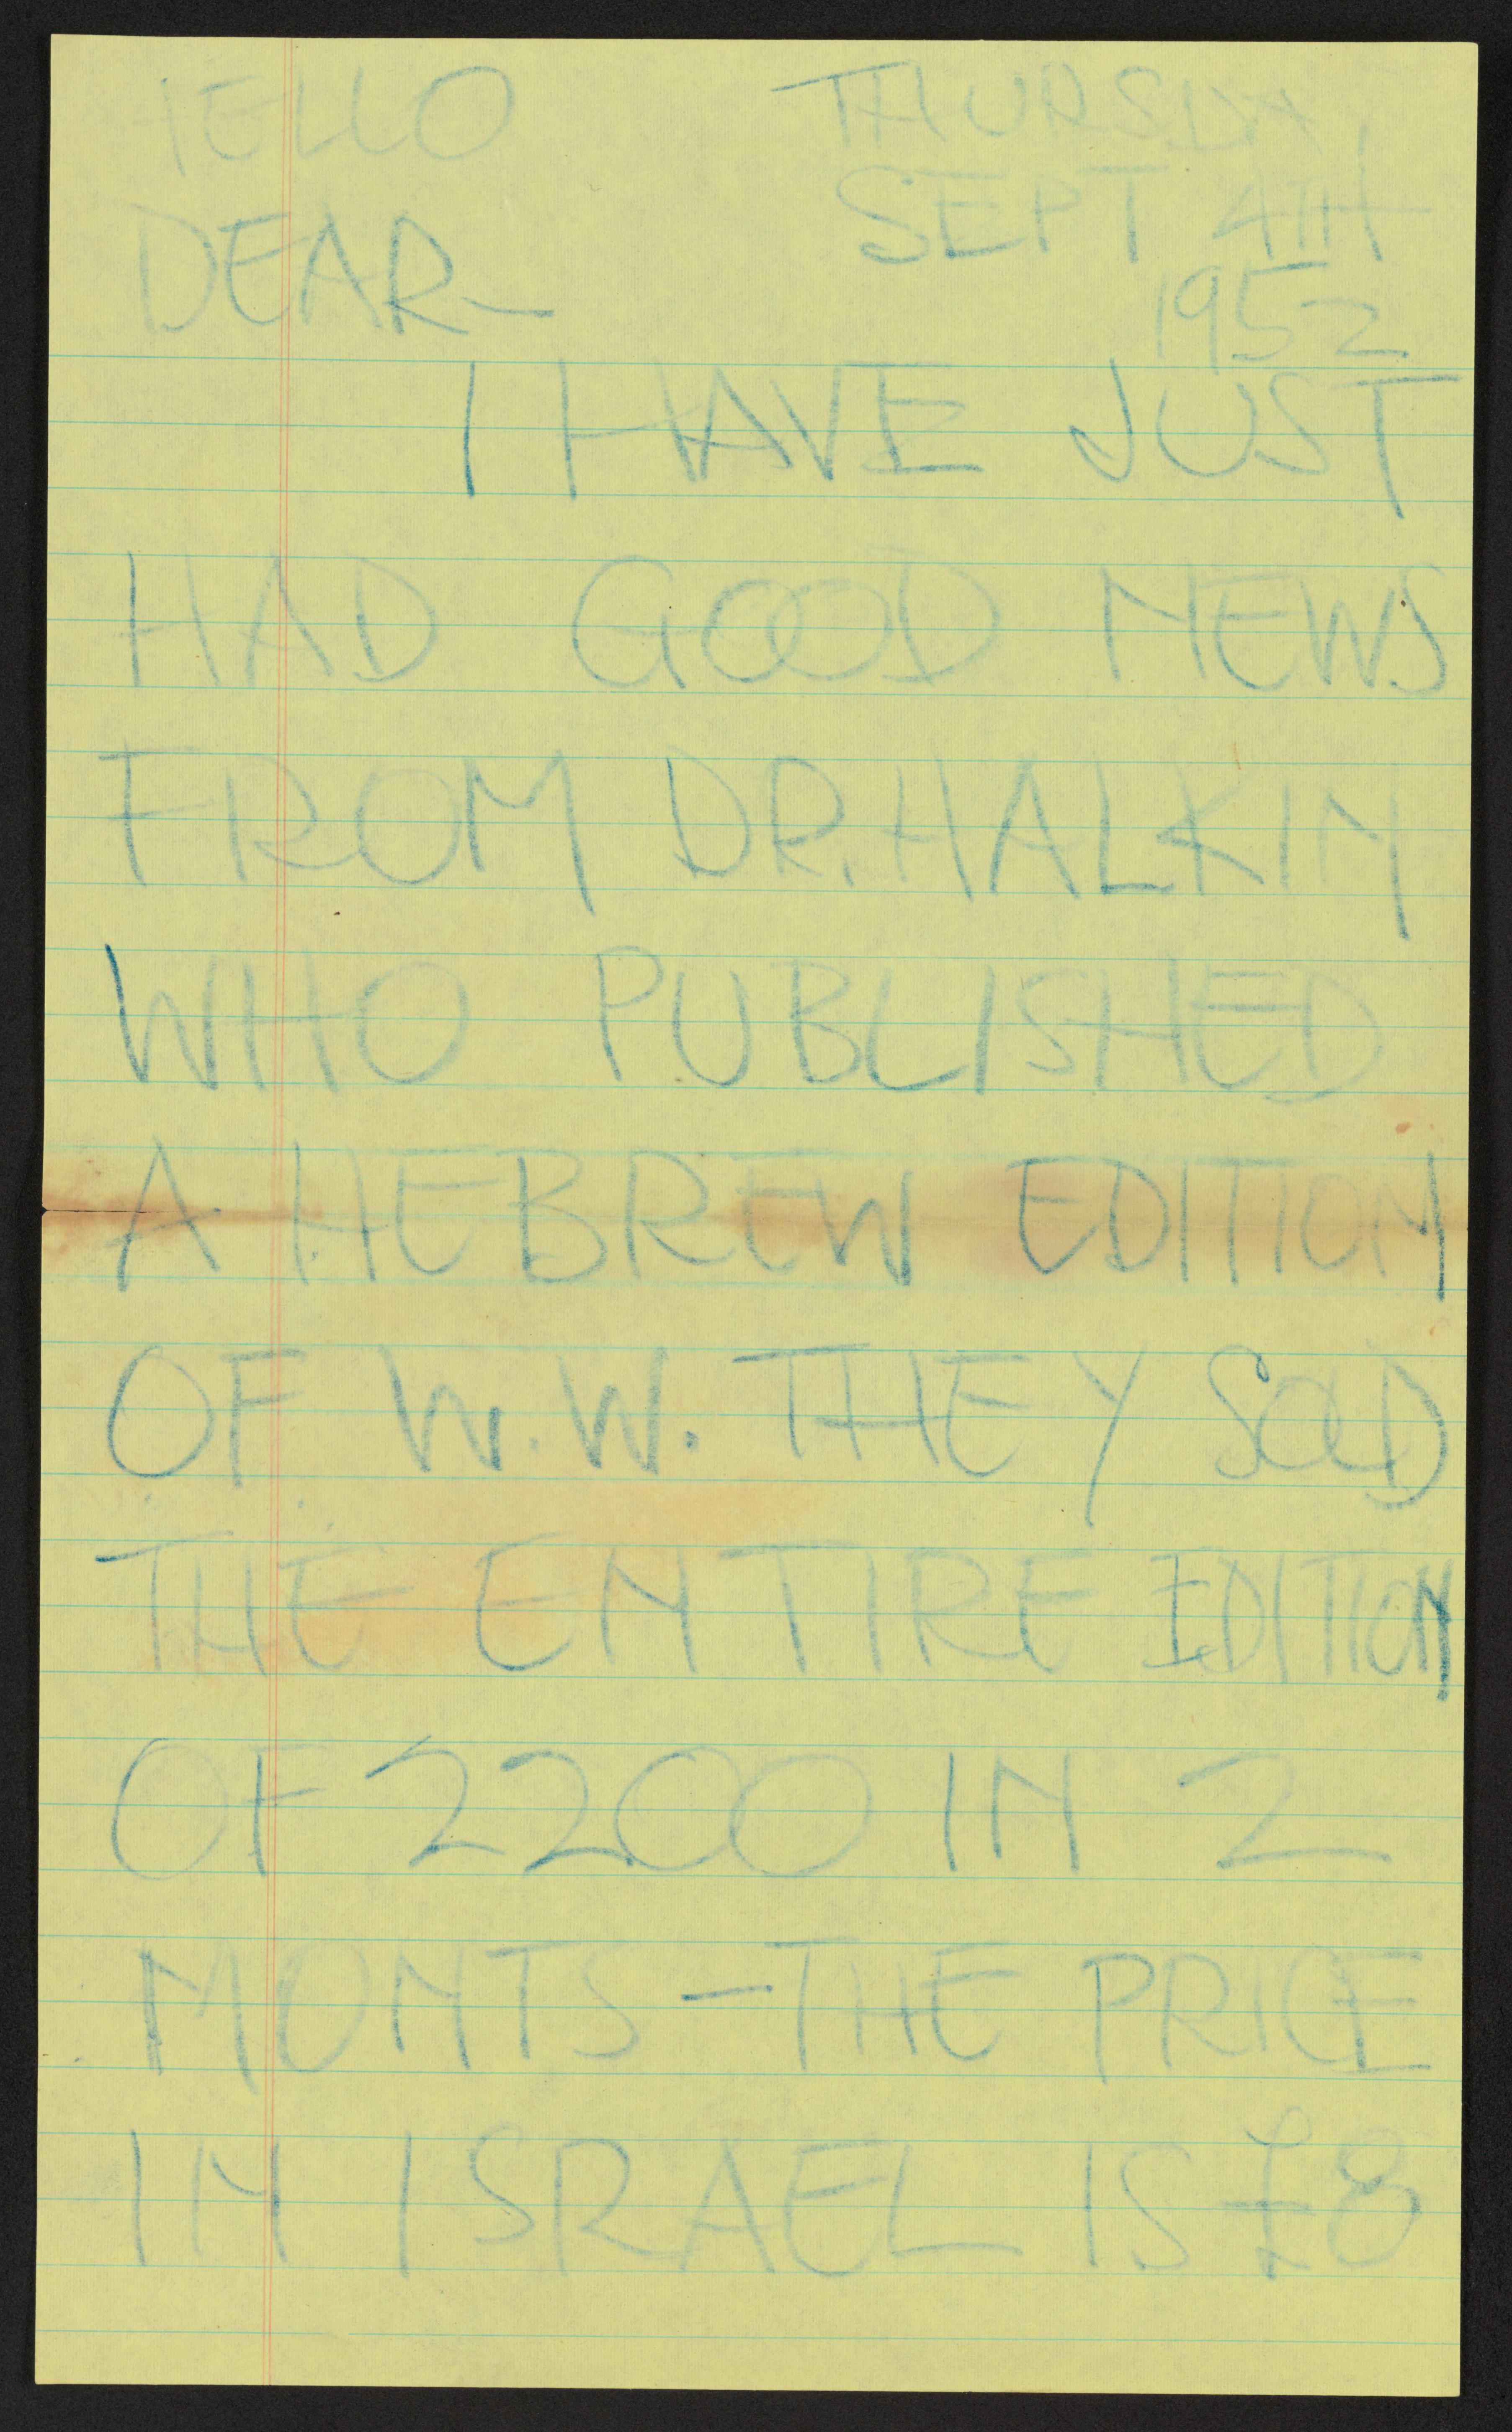 HELLO THURSDAY,
DEAR— SEPT 4TH
1952
I HAVE JUST
HAD GOOD NEWS
FROM DR. HALKIN
WHO PUBLISHED
A HEBREW EDITION
OF W.W. THEY SOLD
THE ENTIRE EDITION
OF 2200 IN 2
MONTS — THE PRICE
IN ISRAEL IS £8